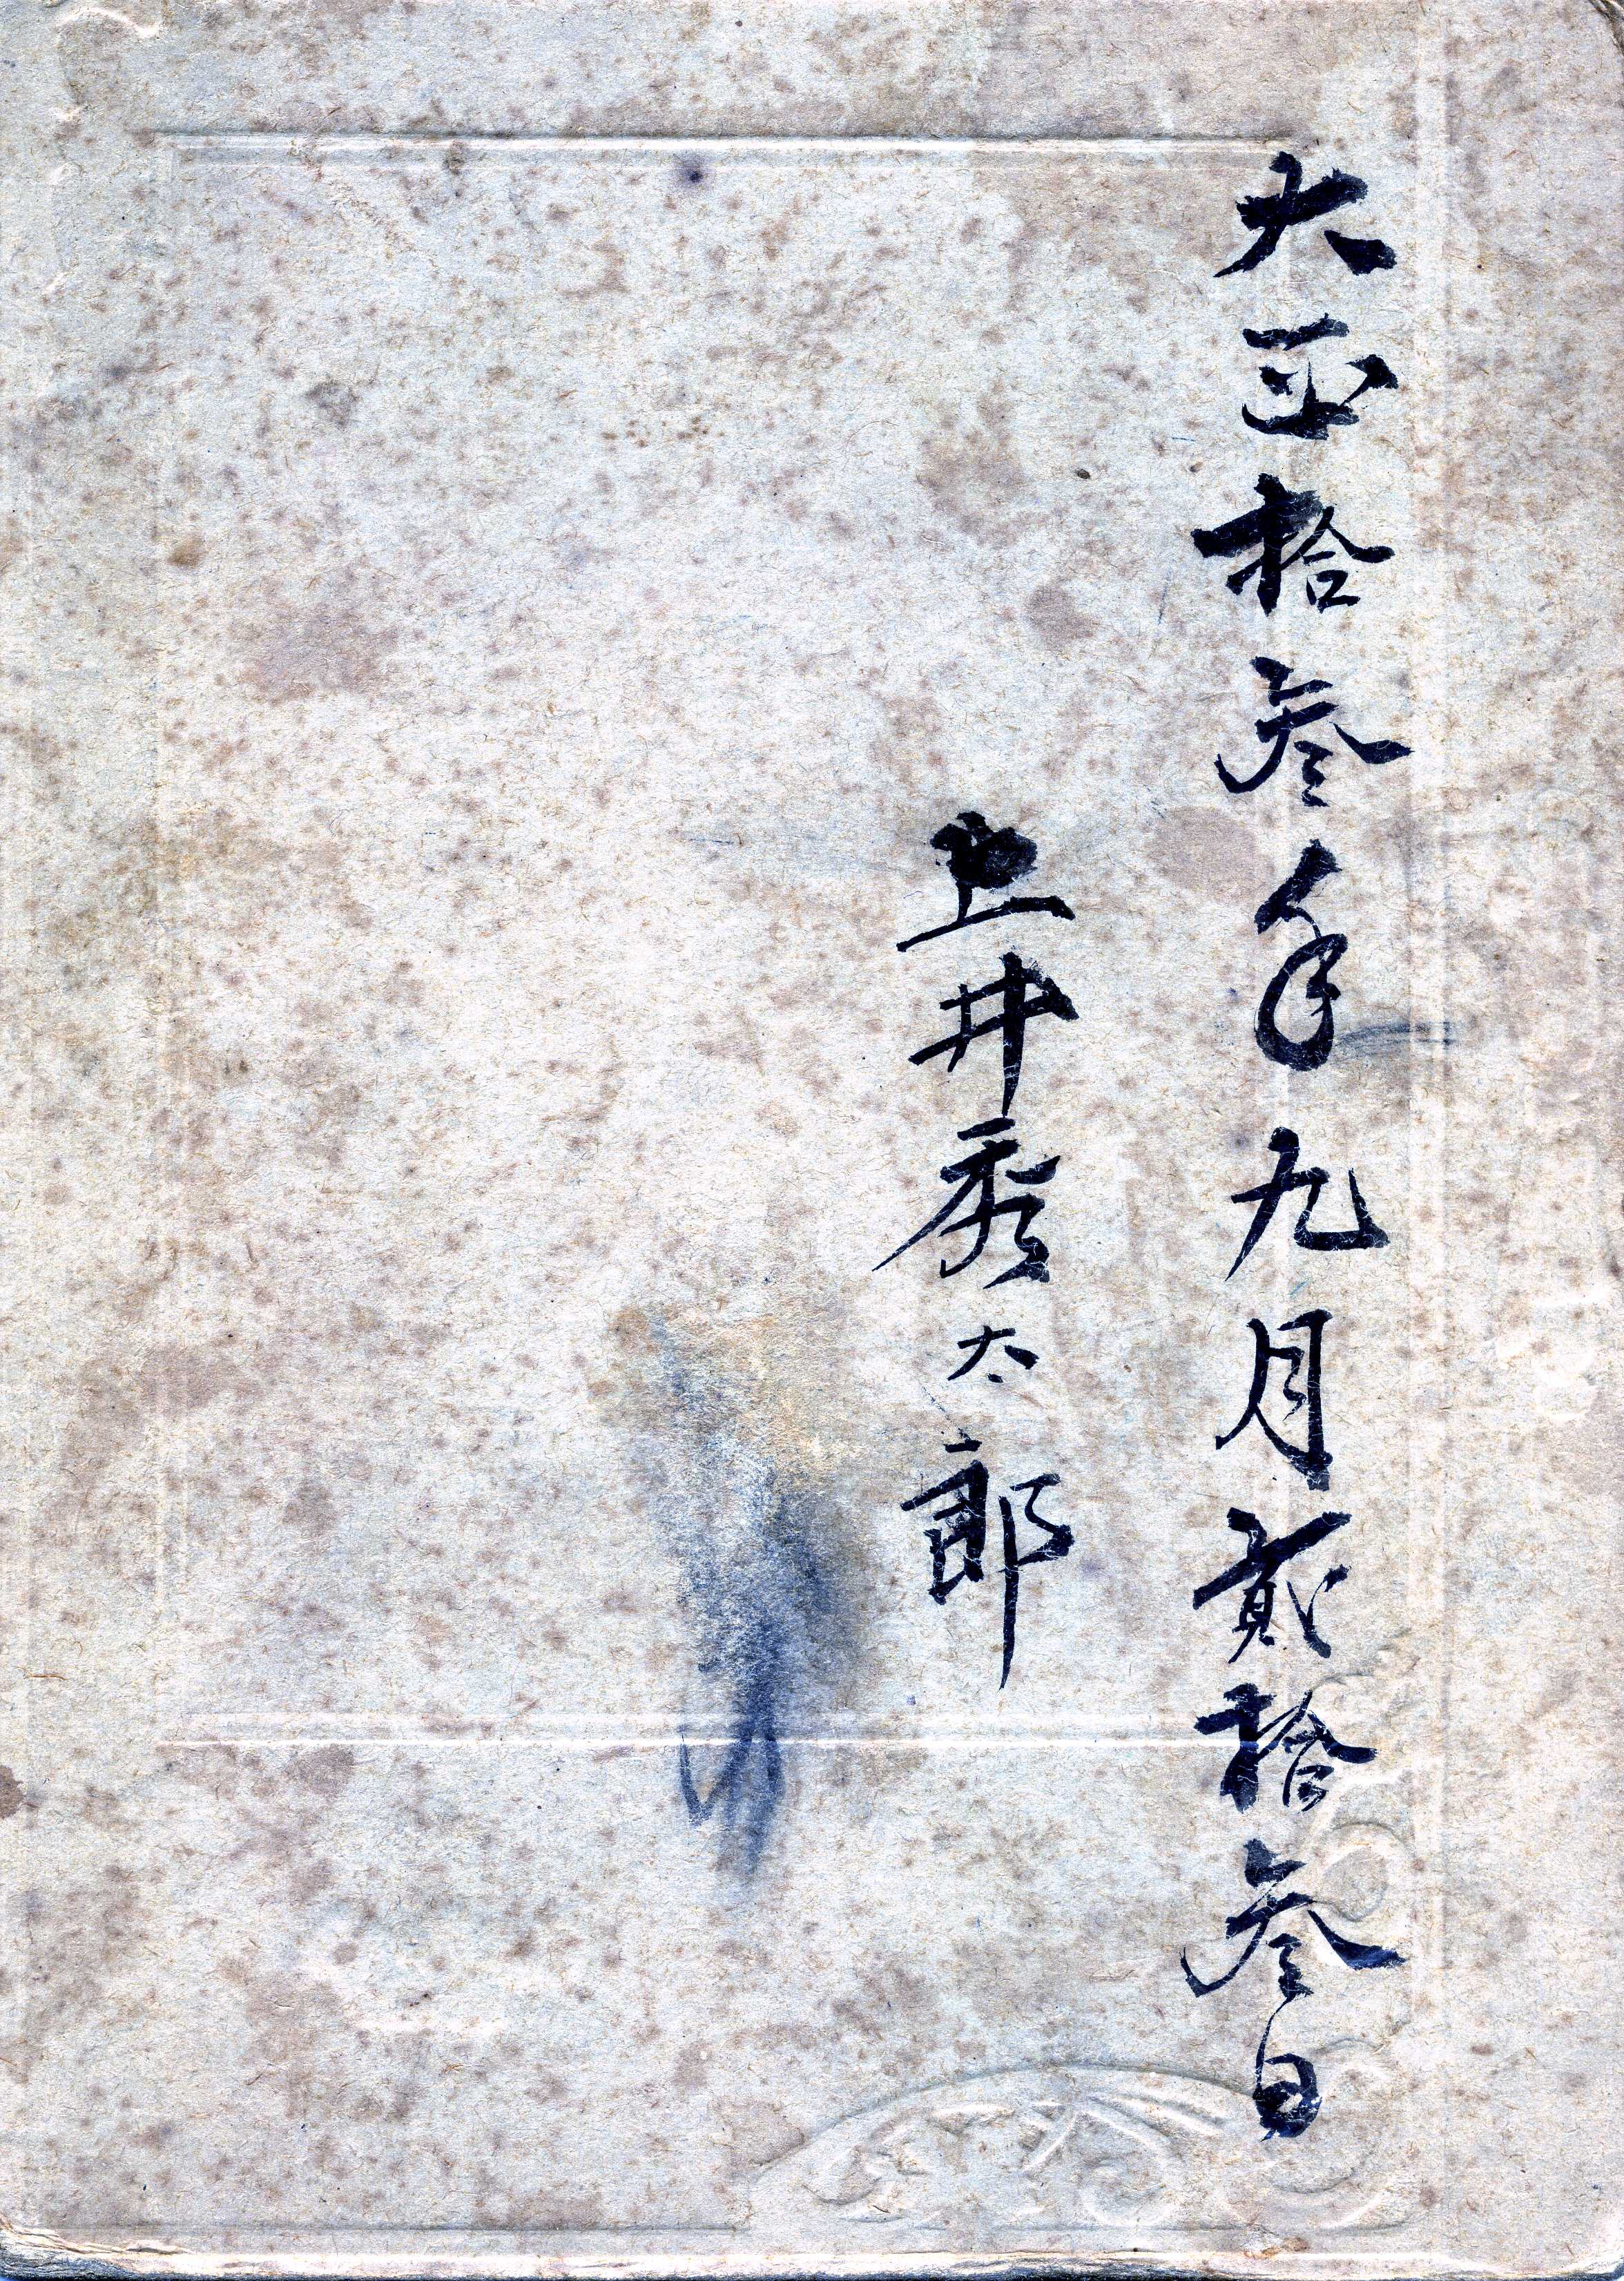 大正拾参年九月貳拾参日
上井秀太郎